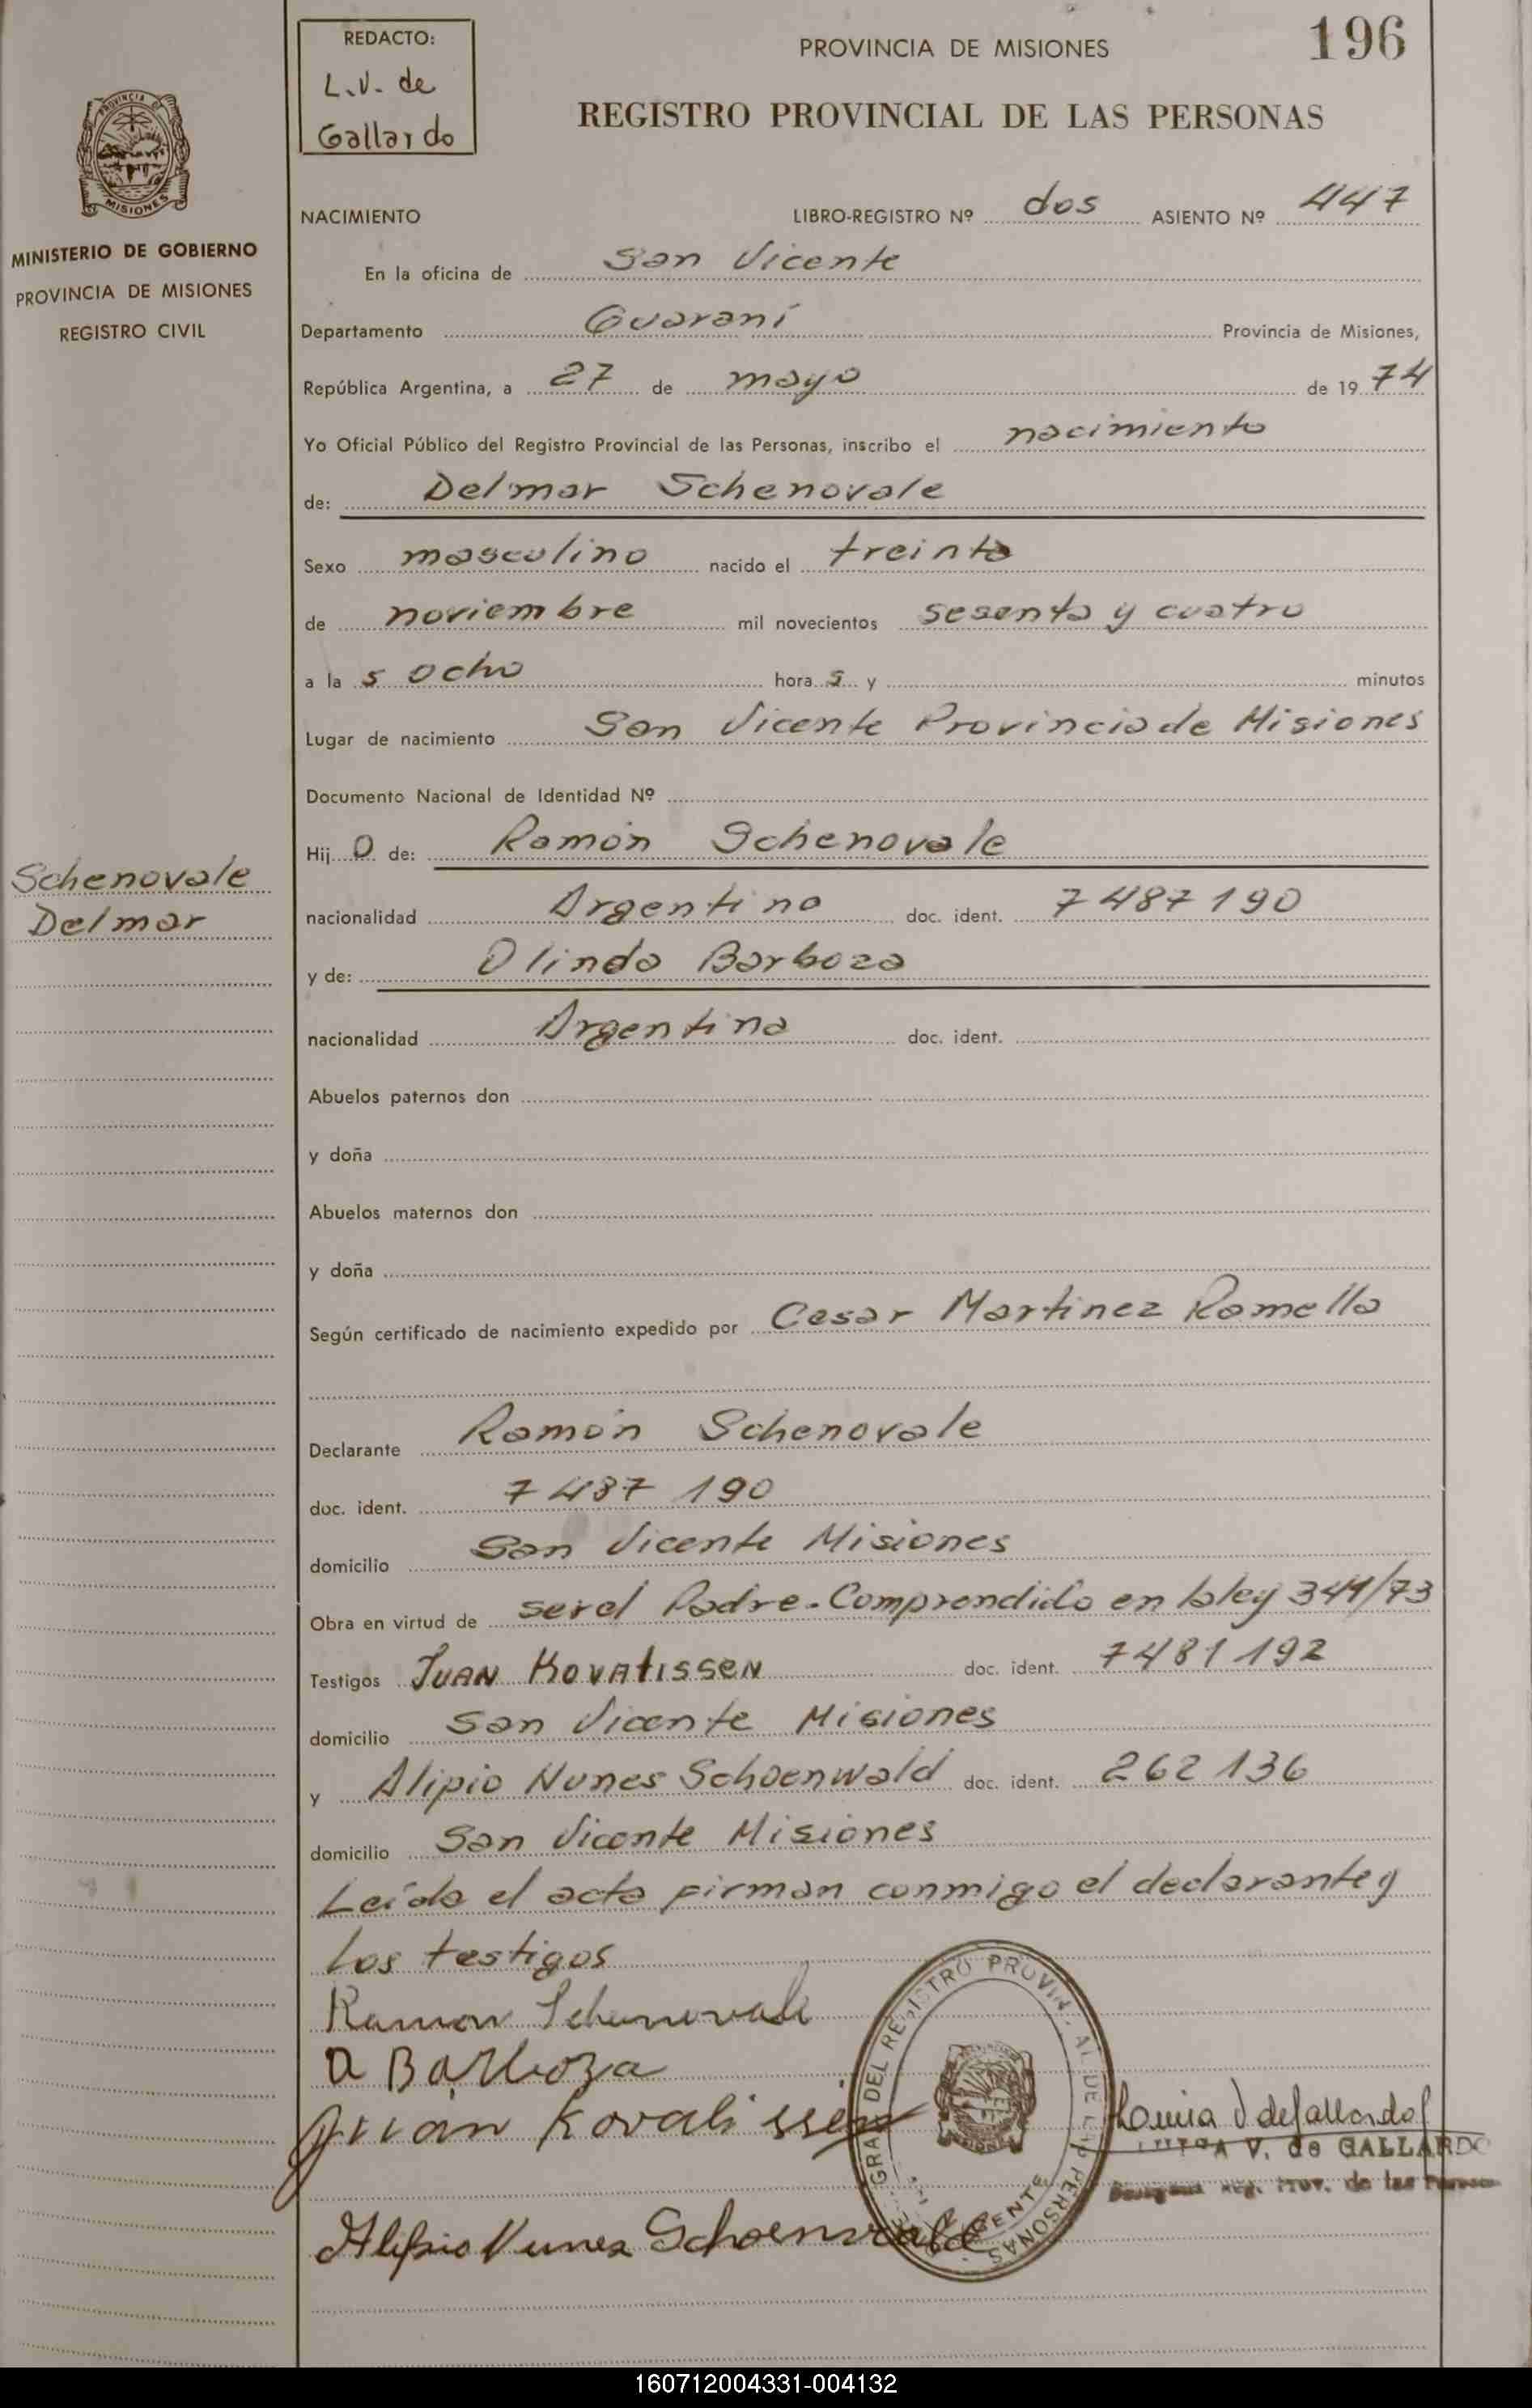 196
REDACTO:
L.V. de
Gallardo
PROVINCIA DE MISIONES
REGISTRO PROVINCIAL DE LAS PERSONAS
PROVINCIA DE
MISIONES
MINISTERIO DE GOBIERNO
PROVINCIA DE MISIONES
REGISTRO CIVIL
NACIMIENTO LIBRO-REGISTRO Nº dos ASIENTO Nº 447
En la oficina de San Vicente
Departamento Guaraní Provincia de Misiones,
República Argentina, a 27 de mayo de 1974
Yo Oficial Público del Registro Provincial de las Personas, inscribo el nacimiento
de: Delmar Schenovale
Sexo masculino nacido el treinta
de noviembre mil novecientos sesenta y cuatro
a las ocho horas y minutos
Lugar de nacimiento San Vicente Provincia de Misiones
Documento Nacional de Identidad Nº
Hijo de: Ramón Schenovale
Schenovale
Delmar
nacionalidad Argentino doc. ident. 7487190
y de: Olinda Barboza
nacionalidad Argentina doc. ident.
Abuelos paternos don
y doña
Abuelos maternos don
y doña
Según certificado de nacimiento expedido por Cesar Martinez Ramella
Declarante Ramón Schenovale
doc. ident. 7487 190
domicilio San Vicente Misiones
Obra en virtud de ser el Padre. Comprendido en la ley 344/73
Testigos JUAN KOVALISSEN doc. ident. 7481192
domicilio San Vicente Misiones
y Alipio Nunes Schoenwald doc. ident. 262136
domicilio San Vicente Misiones
Leída el acta firman conmigo el declarante y
los testigos
Ramon Schenovale
O Barboza
Juan Kovalissen
Alipio Nunes Schoenwald
DEL REGISTRO PROVINCIAL DE LAS PERSONAS
V. de GALLARDO
Reg. Prov. de las Personas
160712004331-004132